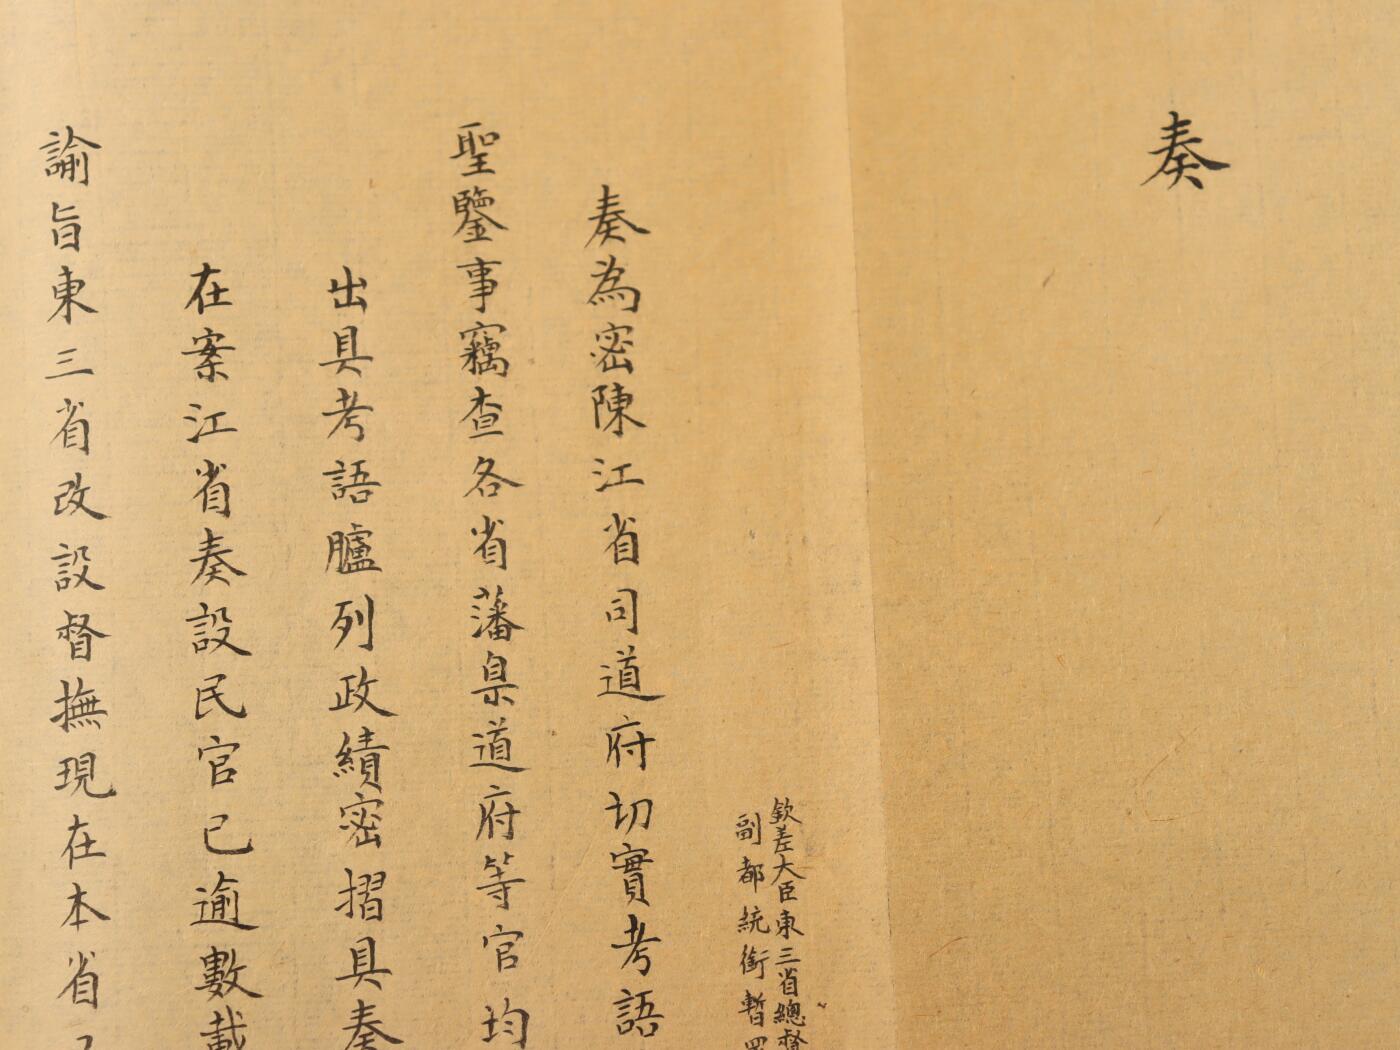 奏
欽差大臣東三省總督
副都統銜暫署
奏為密陳江省司道府切實考語
聖鑒事竊查各省藩臬道府等官均
出具考語臚列政績密摺具奏
在案江省奏設民官已逾數載
諭旨東三省改設督撫現在本省